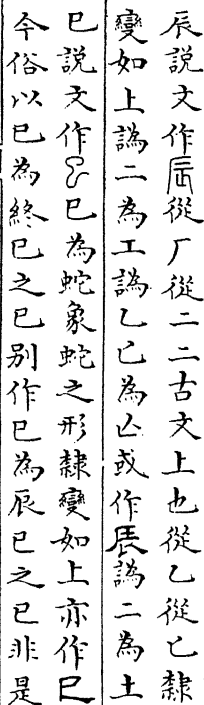 辰說文作𠨷從厂從二二古文上也從乙從匕隸
變如上譌二為工譌乙匕為㐺或作辰譌二為土
巳說文作巳為蛇象蛇之形隸變如上亦作巳
今俗以巳為終巳之巳別作巳為辰巳之巳非是